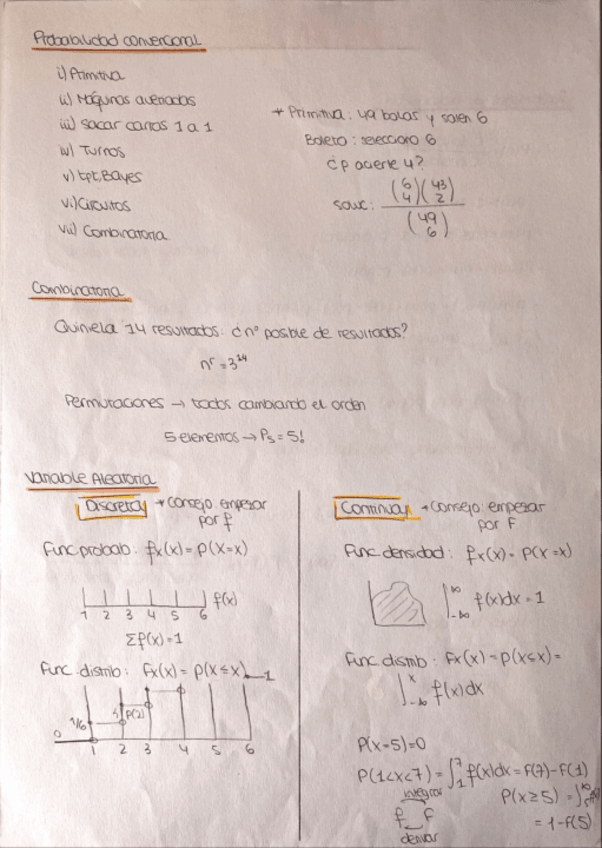 Probabilidad convencional
i) Primitiva
ii) Máquinas averiadas
iii) Sacar cartas 1 a 1
iv) Turnos
v) tpt, Bayes
vi) Circuitos
vii) Combinatoria
* Primitiva: 49 bolas y salen 6
Boleto: selecciono 6
¿P acierte 4?
soluc: (6 4)(43 2) / (49 6)
Combinatoria
Quiniela 14 resultados: ¿nº posible de resultados?
n^r = 3^14
Permutaciones → todos cambiando el orden
5 elementos → P5 = 5!
Variable Aleatoria
Discreta * Consejo: empezar por f
Func probab: fx(x) = P(X=x)
1 2 3 4 5 6 f(x)
Σf(x) = 1
Func distrib: Fx(x) = P(X≤x)
1
1/6 P(2)
0
1 2 3 4 5 6
Continua * Consejo: empezar por F
Func densidad: fx(x) = P(X=x)
∫_-∞^∞ f(x)dx = 1
Func distrib: Fx(x) = P(X≤x) =
∫_-∞^x f(x)dx
P(X=5)=0
P(1<x<7) = ∫_1^7 f(x)dx = F(7)-F(1)
integrar
f F
derivar
P(X≥5) = ∫_5^∞
= 1-F(5)